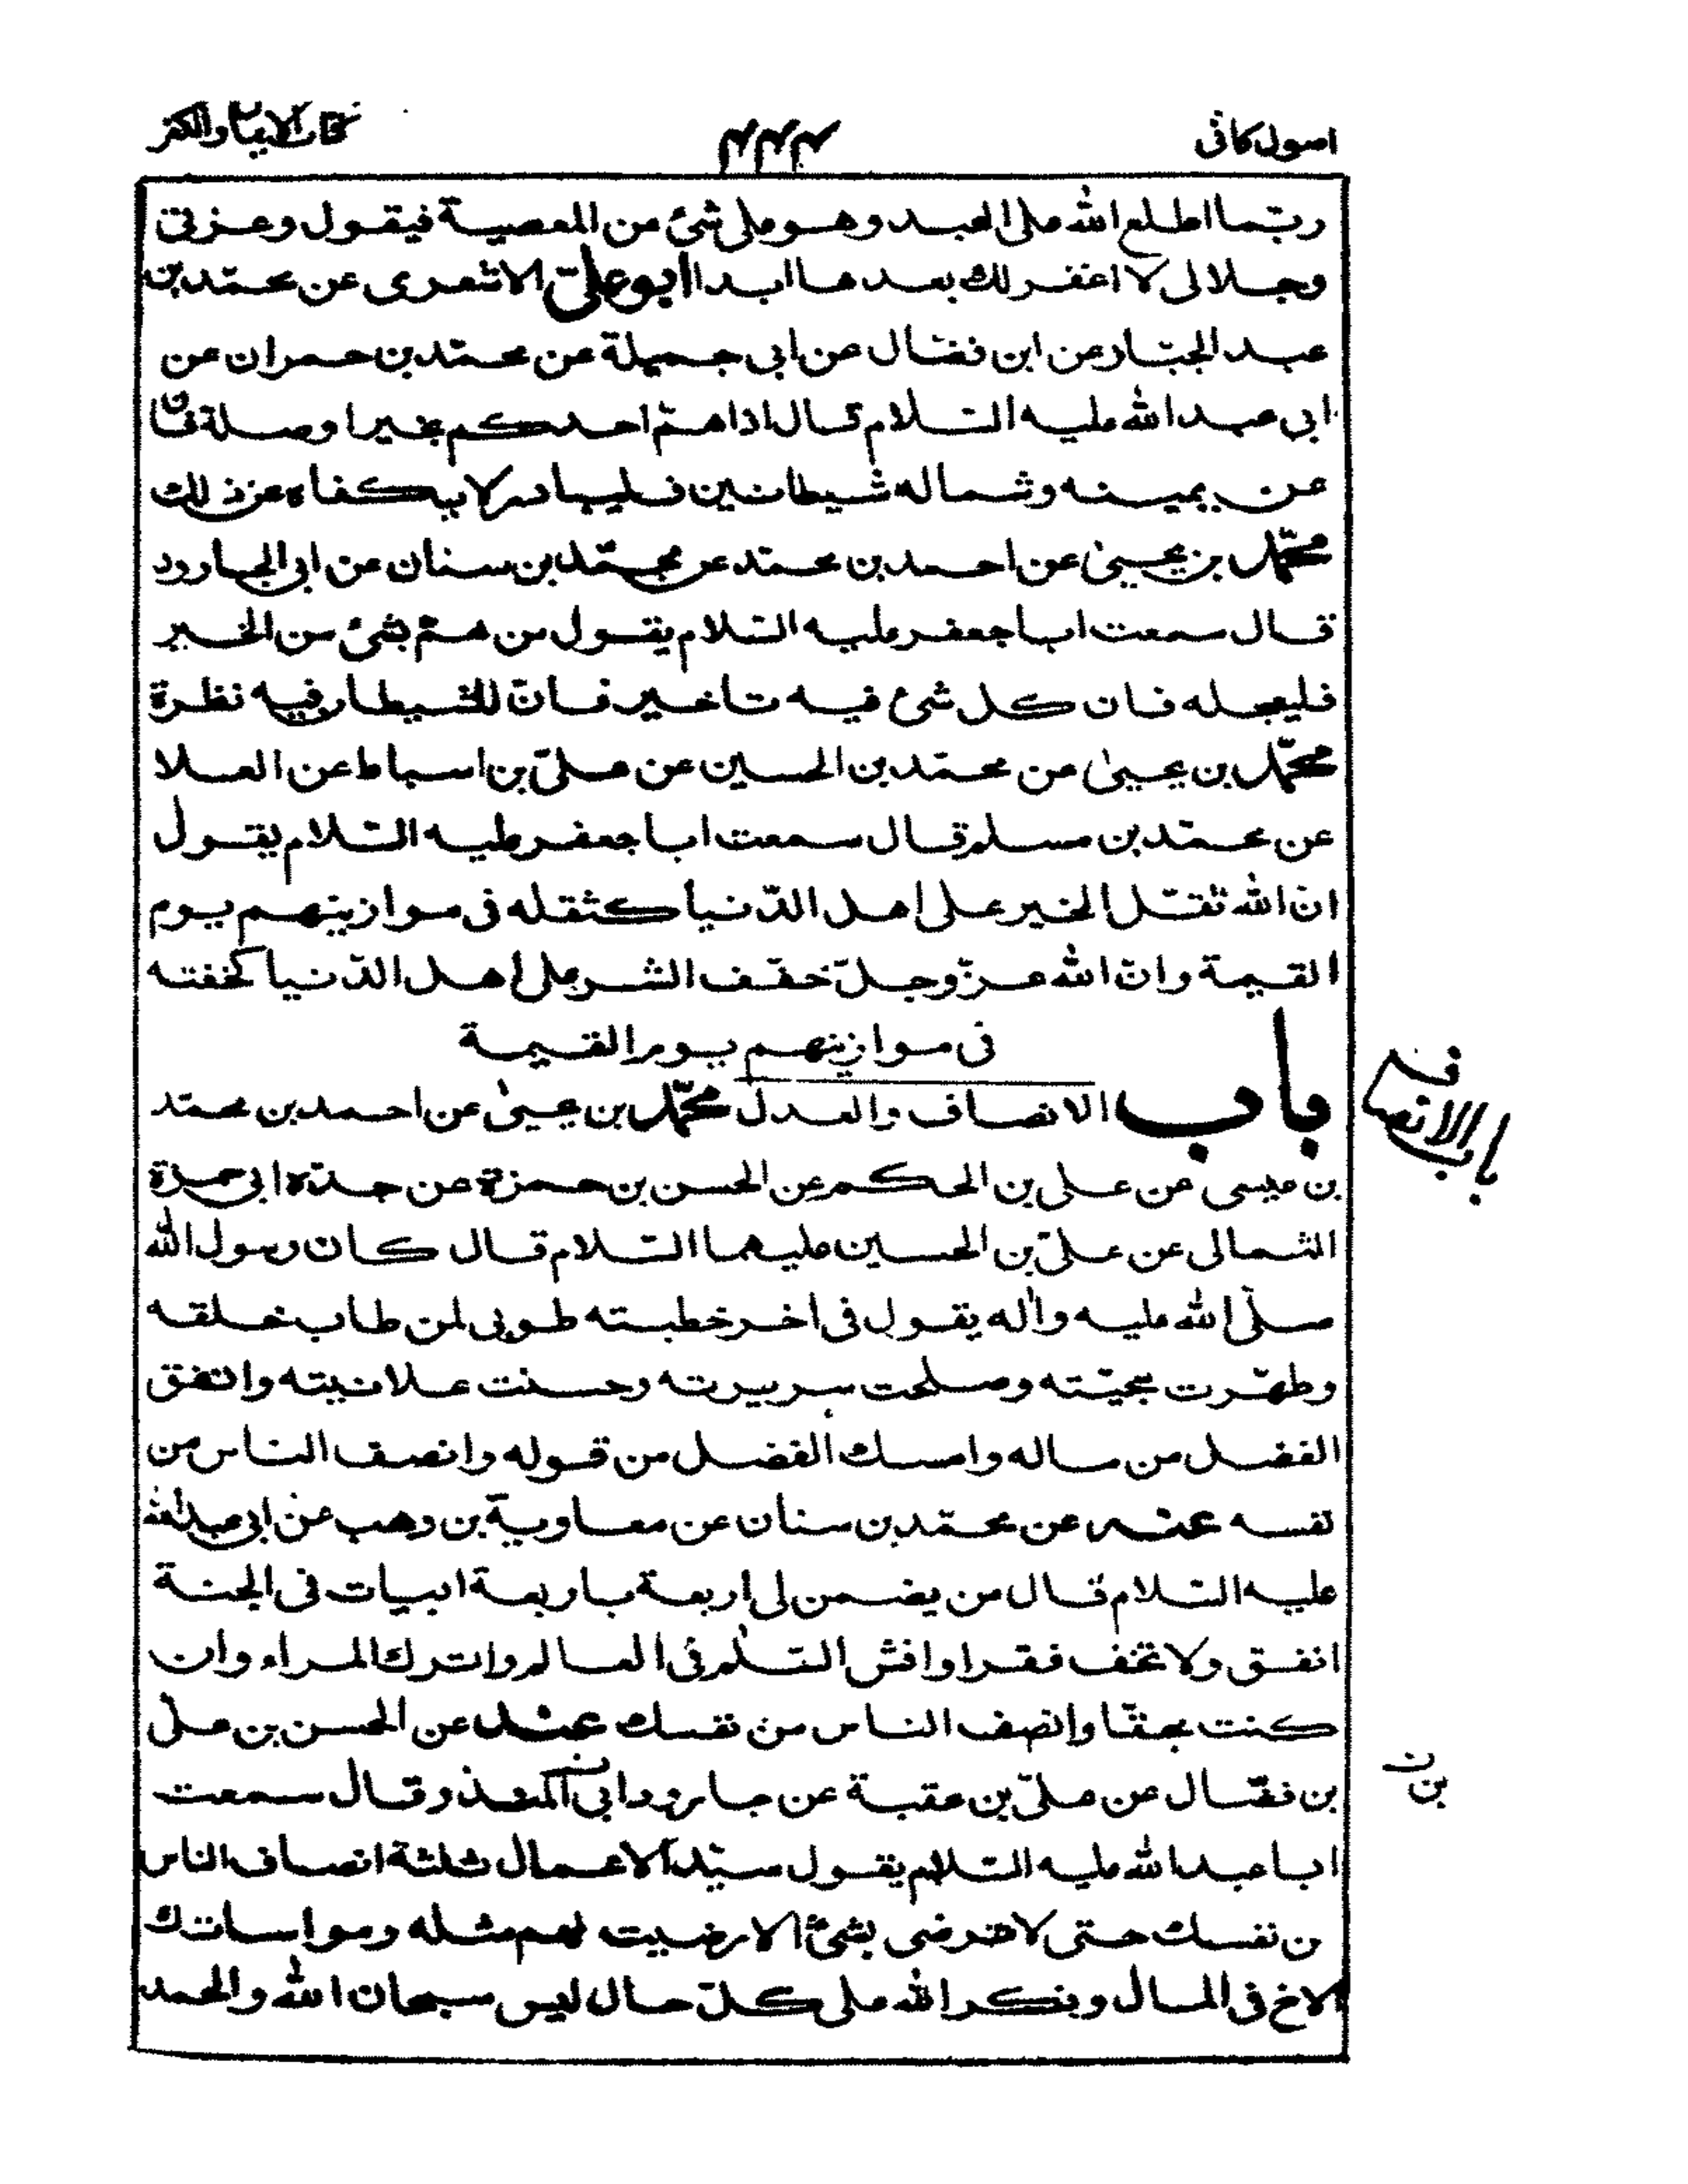 اصول كافى
كتاب الايمان والكفر
ربّما اطلع الله على العبد وهو على شئ من المعصية فيقول وعزتى
وجلالى لا اغفر لك بعدها ابدا ابو علىّ الاشعرى عن محمّد بن
عبد الجبّار عن ابن فضّال عن ابى جميلة عن محمّد بن حمران عن
ابى عبد الله عليه السّلام قال اذا همّ احدكم بخير او صلة فانّ
عن يمينه وشماله شيطانين فليبادر لا يكفاه عن ذلك
محمّد بن يحيىٰ عن احمد بن محمّد عن محمّد بن سنان عن ابى الجارود
قال سمعت ابا جعفر عليه السّلام يقول من همّ بشئ من الخير
فليعجله فان كل شئ فيه تاخير فانّ للشيطان فيه نظرة
محمّد بن يحيىٰ عن محمّد بن الحسين عن علىّ بن اسباط عن العلا
عن محمّد بن مسلم قال سمعت ابا جعفر عليه السّلام يقول
انّ الله ثقّل الخير على اهل الدّنيا كثقله فى موازينهم يوم
القيمة وانّ الله عزّ وجلّ خفّف الشر على اهل الدّنيا كخفته
فى موازينهم يوم القيمة
باب الانصاف والعدل محمّد بن يحيىٰ عن احمد بن محمّد
باب الانصاف
بن عيسى عن على بن الحكم عن الحسن بن حمزة عن جدّه ابى حمزة
الثمالى عن علىّ بن الحسين عليهما السّلام قال كان رسول الله
صلّى الله عليه واٰله يقول فى اخر خطبته طوبى لمن طاب خلقه
وطهّرت سجيّته وصلحت سريرته وحسنت علانيته وانفق
الفضل من ماله وامسك الفضل من قوله وانصف الناس من
نفسه عنه عن محمّد بن سنان عن معاوية بن وهب عن ابى عبد الله
عليه السّلام قال من يضمن لى اربعة باربعة ابيات فى الجنة
انفق ولا تخف فقرا وافش السّلم فى العالم واترك المراء وان
كنت محقّا وانصف الناس من نفسك عنه عن الحسن بن علىّ
بن فضّال عن علىّ بن عقبة عن جارود ابى المنذر قال سمعت
بن
ابا عبد الله عليه السّلام يقول سيّد الاعمال ثلثة انصاف الناس
من نفسك حتى لا ترضى بشئ الا رضيت لهم مثله ومواساتك
الاخ فى المال وذكر الله على كلّ حال ليس سبحان الله والحمد